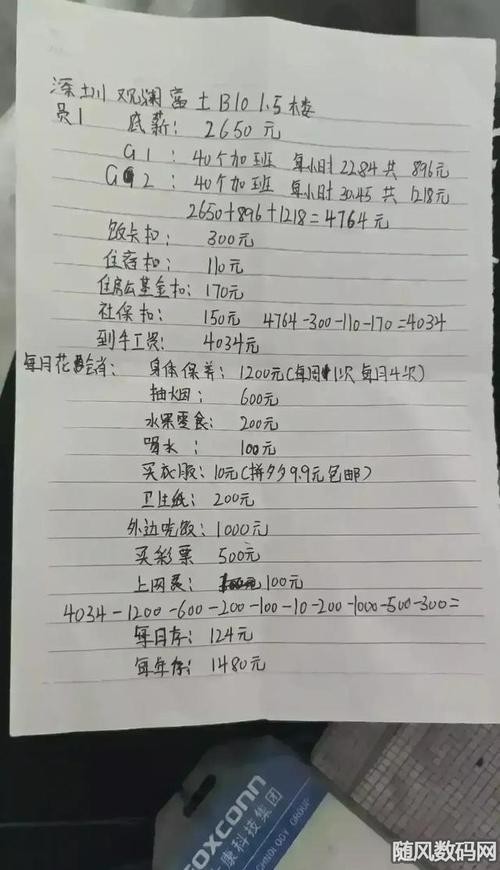 深圳观澜富士B10 1.5楼
员1 底薪: 2650元
G1: 40个加班 每小时22.84 共 896元
G2: 40个加班 每小时30.45 共 1218元
2650+896+1218=4764元
饭卡扣: 300元
住宿扣: 110元
住房公基金扣: 170元
社保扣: 150元 4764-300-110-170=4034
到手工资: 4034元
每月花销: 身体保养: 1200元(每周1次 每月4次)
抽烟: 600元
水果零食: 200元
喝水: 100元
买衣服: 10元(拼多多9.9元包邮)
卫生纸: 200元
外边吃饭: 1000元
买彩票 500元
上网费: 100元
4034-1200-600-200-100-10-200-1000-500-300=
每月存: 124元
每年存: 1480元
FOXCONN
康科技集团
CHNOLOGY GROUP
随风数码网